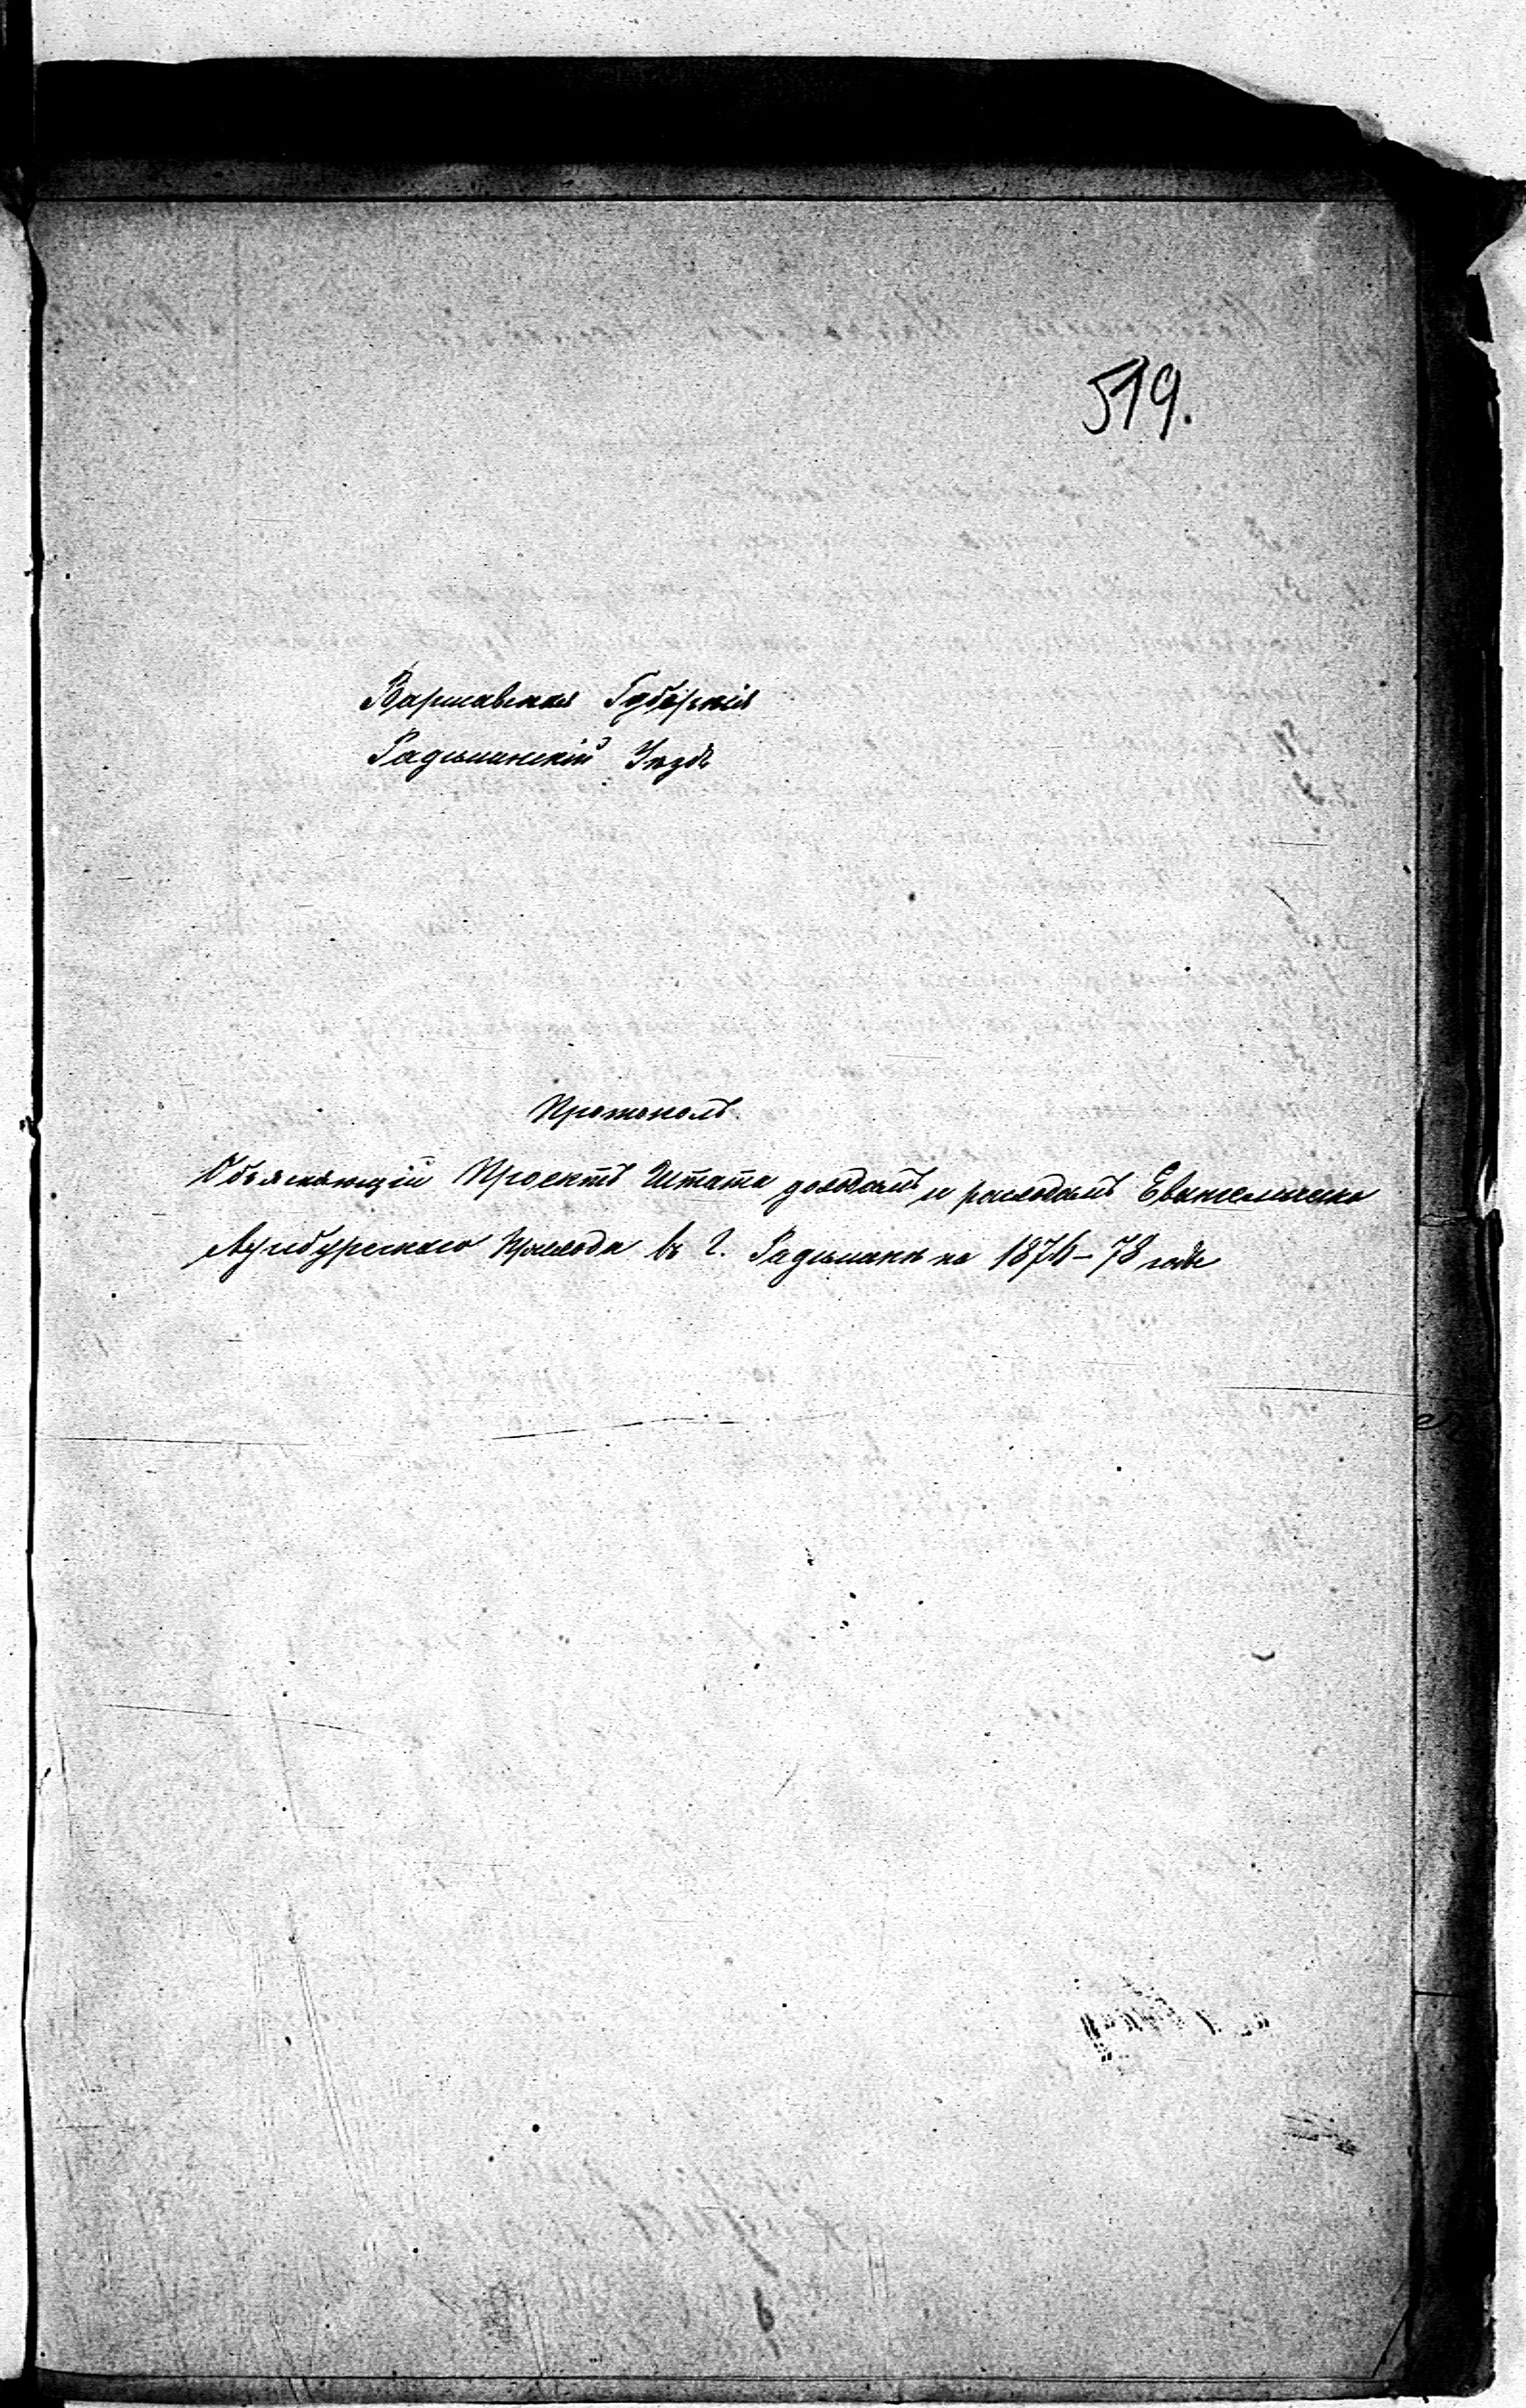 519.
Варшавская Губернія
Радыминскій Уѣздъ
Протоколъ
Объясняющій Проектъ Штата доходамъ и расходамъ Евангелическо
Аугсбургскаго Прихода въ г. Радыминѣ на 1876–78 годы